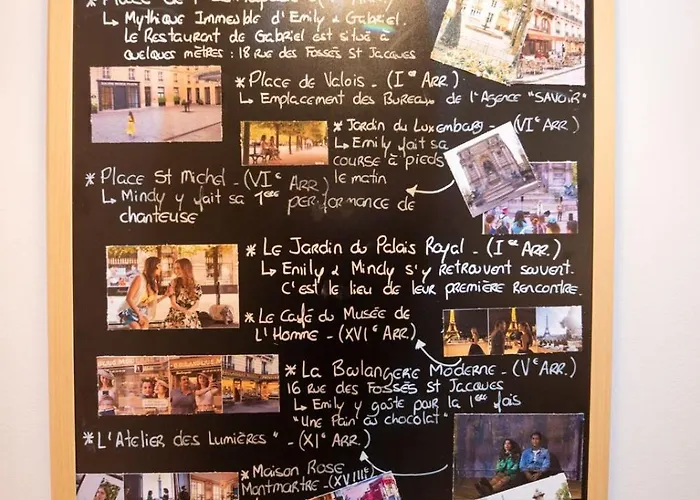 * Place de
↳ Mythique Immeuble d'Emily & Gabriel.
Le Restaurant de Gabriel est situé à
quelques mètres : 18 rue des Fossés St Jacques
* Place de Valois - (Ier Arr.)
↳ Emplacement des Bureaux de l'Agence "SAVOIR"
* Jardin du Luxembourg - (VIe Arr)
↳ Emily fait sa
course à pieds
le matin
* Place St Michel - (VIe Arr)
↳ Mindy y fait sa 1ère performance de
chanteuse
* Le Jardin du Palais Royal - (Ier Arr.)
↳ Emily & Mindy s'y retrouvent souvent.
C'est le lieu de leur première rencontre.
* Le Café du Musée de
l'Homme - (XVIe Arr.)
* La Boulangerie Moderne - (Ve Arr.)
16 rue des Fossés St Jacques
↳ Emily y goûte pour la 1ère fois
"Une Pain au chocolat"
* L'Atelier des Lumières" - (XIe Arr.)
* Maison Rose
Montmartre - (XVIIIe